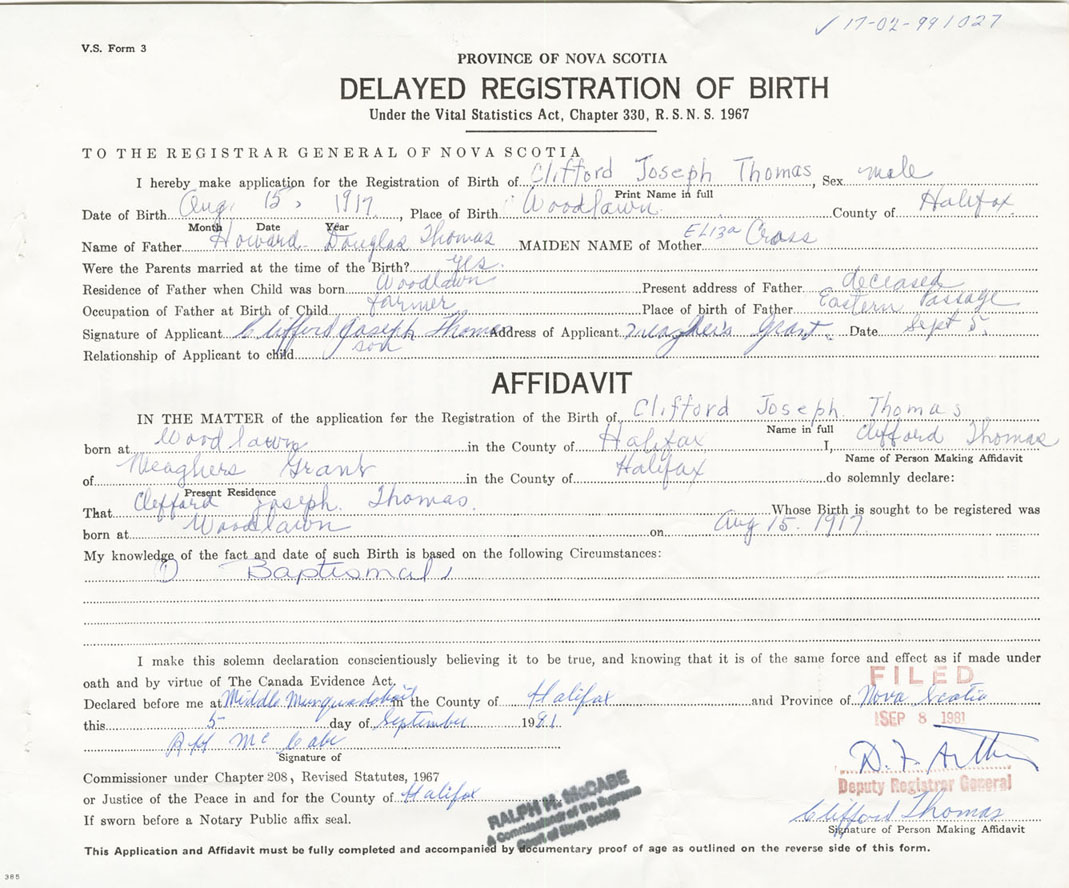 ✓ 17-02-991027
V.S. Form 3
PROVINCE OF NOVA SCOTIA
DELAYED REGISTRATION OF BIRTH
Under the Vital Statistics Act, Chapter 330, R.S.N.S. 1967
TO THE REGISTRAR GENERAL OF NOVA SCOTIA
I hereby make application for the Registration of Birth of Clifford Joseph Thomas, Sex male
Print Name in full
Date of Birth Aug. 15, 1917, Place of Birth Woodlawn County of Halifax
Month Date Year
Name of Father Howard Douglas Thomas MAIDEN NAME of Mother Eliza Cross
Were the Parents married at the time of the Birth? yes.
Residence of Father when Child was born Woodlawn Present address of Father deceased
Occupation of Father at Birth of Child farmer Place of birth of Father Eastern Passage
Signature of Applicant Clifford Joseph Thomas Address of Applicant Meagher's Grant. Date Sept 5.
Relationship of Applicant to child son
AFFIDAVIT
IN THE MATTER of the application for the Registration of the Birth of Clifford Joseph Thomas
Name in full
born at Woodlawn in the County of Halifax I, Clifford Thomas
Name of Person Making Affidavit
of Meaghers Grant in the County of Halifax do solemnly declare:
Present Residence
That Clifford Joseph Thomas. Whose Birth is sought to be registered was
born at Woodlawn on Aug 15. 1917.
My knowledge of the fact and date of such Birth is based on the following Circumstances:
Baptismal
I make this solemn declaration conscientiously believing it to be true, and knowing that it is of the same force and effect as if made under
oath and by virtue of The Canada Evidence Act.
FILED
Declared before me at Middle Musquodoboit in the County of Halifax and Province of Nova Scotia
this 5 day of September 1981.
SEP 8 1981
R H McCabe
Signature of
D. F. Arthur
Commissioner under Chapter 208, Revised Statutes, 1967
Deputy Registrar General
or Justice of the Peace in and for the County of Halifax
RALPH H. McCABE
A Commissioner of the Supreme
Court of Nova Scotia
Clifford Thomas
If sworn before a Notary Public affix seal.
Signature of Person Making Affidavit
This Application and Affidavit must be fully completed and accompanied by documentary proof of age as outlined on the reverse side of this form.
385